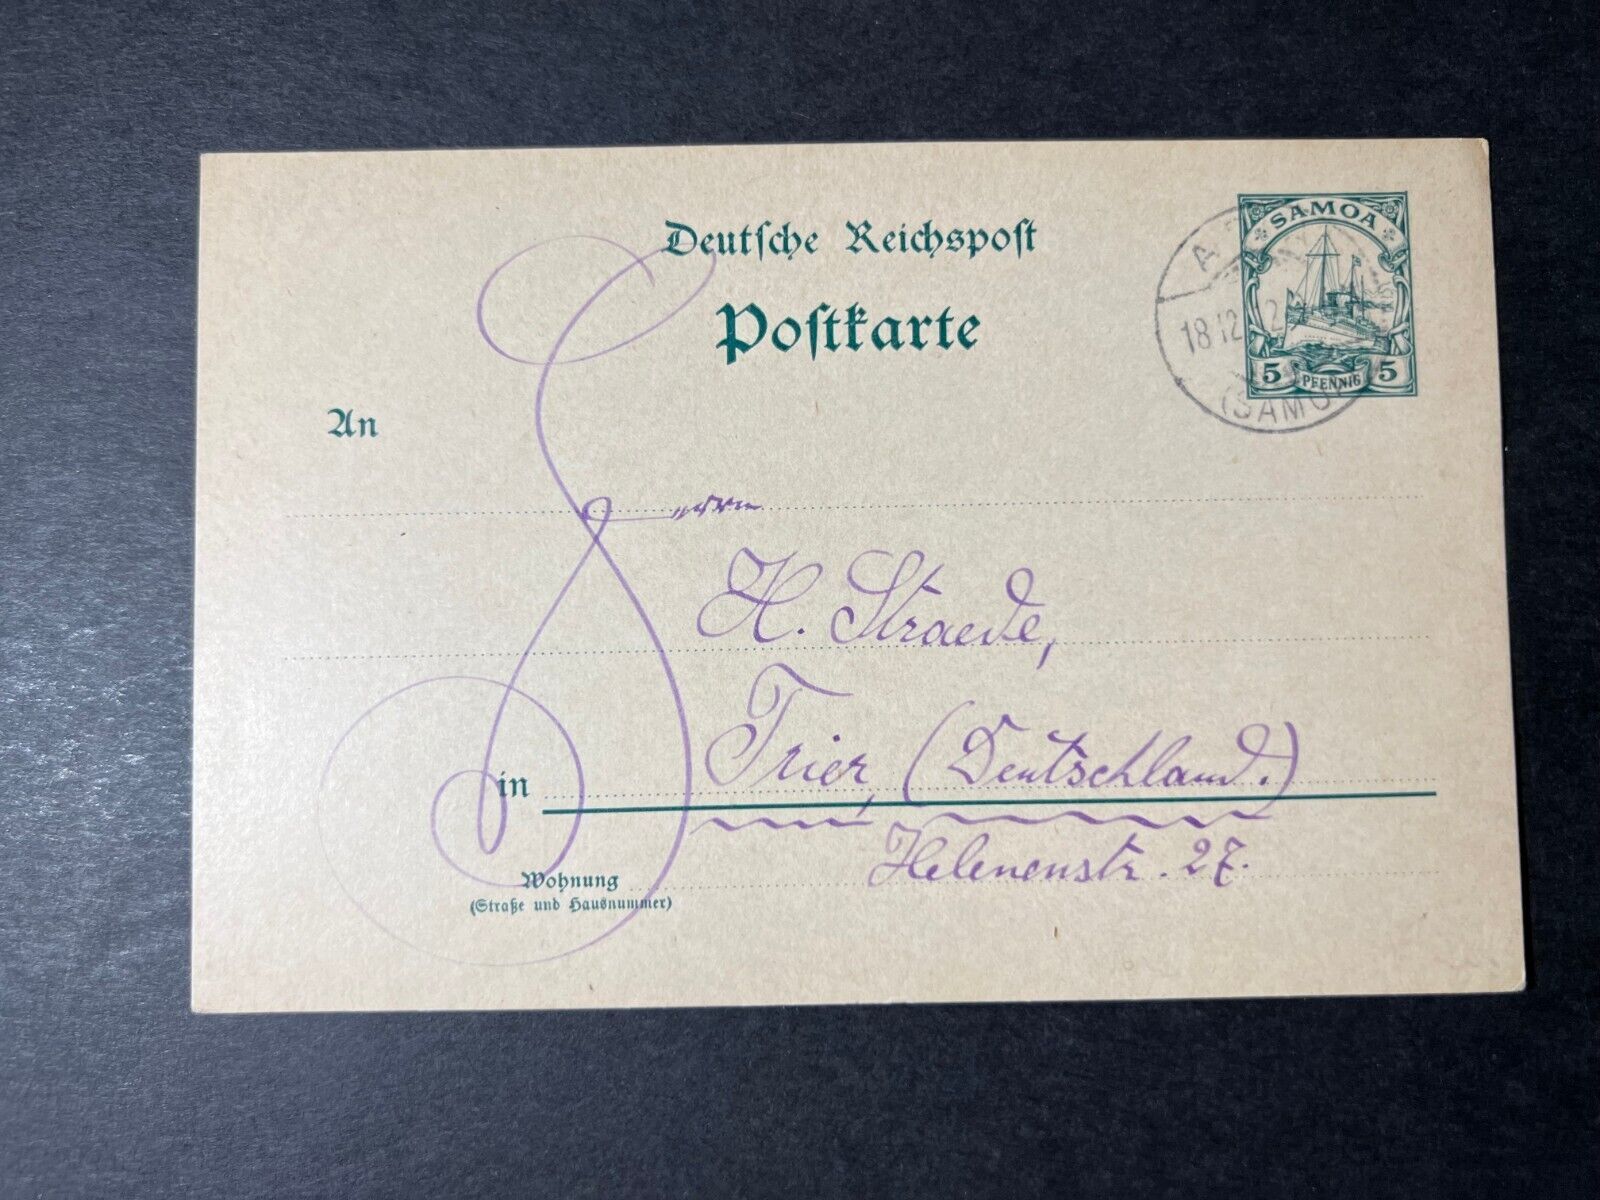 Deutsche Reichspost
Postkarte
SAMOA
5 PFENNIG 5
18 12
(SAMO
An
H. Straede,
in Trier, (Deutschland.)
Helenenstr. 27.
Wohnung
(Straße und Hausnummer)